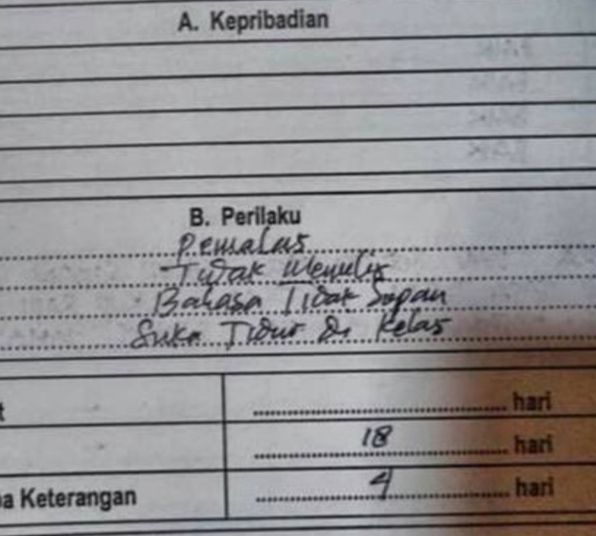 A. Kepribadian
B. Perilaku
Pemalas
Tidak Menulis
Bahasa Tidak Sopan
Suka Tidur Di Kelas
hari
18 hari
Keterangan 4 hari